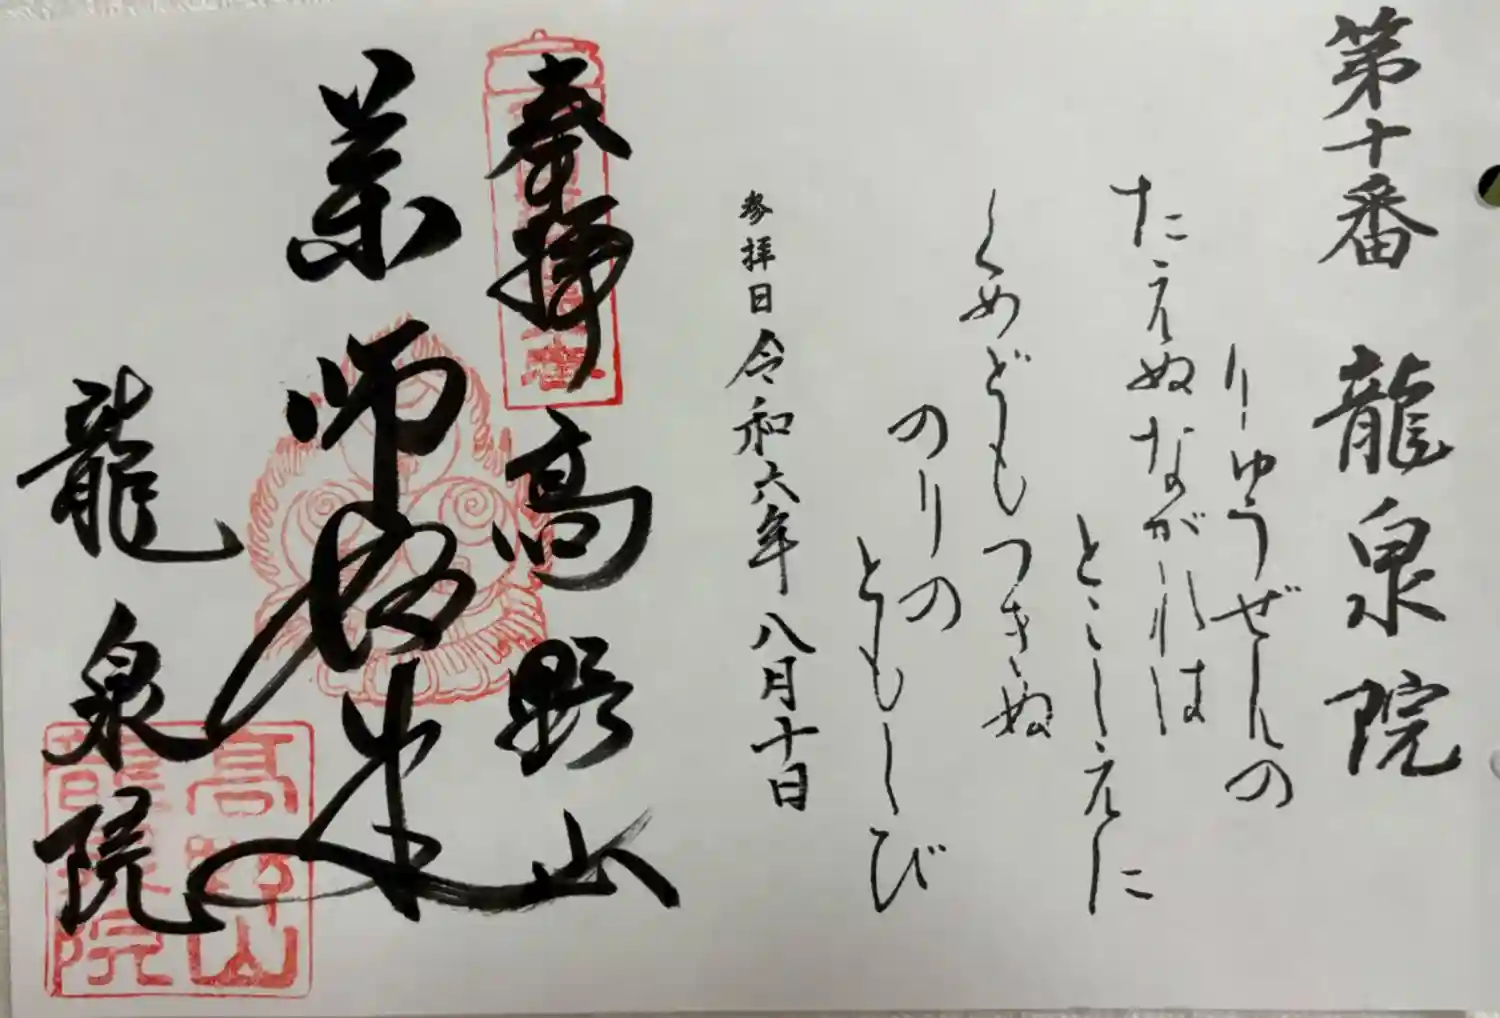 第十番 龍泉院
りゅうぜんの
たえぬながれは
とこしえに
くめどもつきぬ
のりの
ともしび
参拝日 令和六年八月十日
奉拝 高野山
薬師如来
龍泉院
高野山
龍泉院